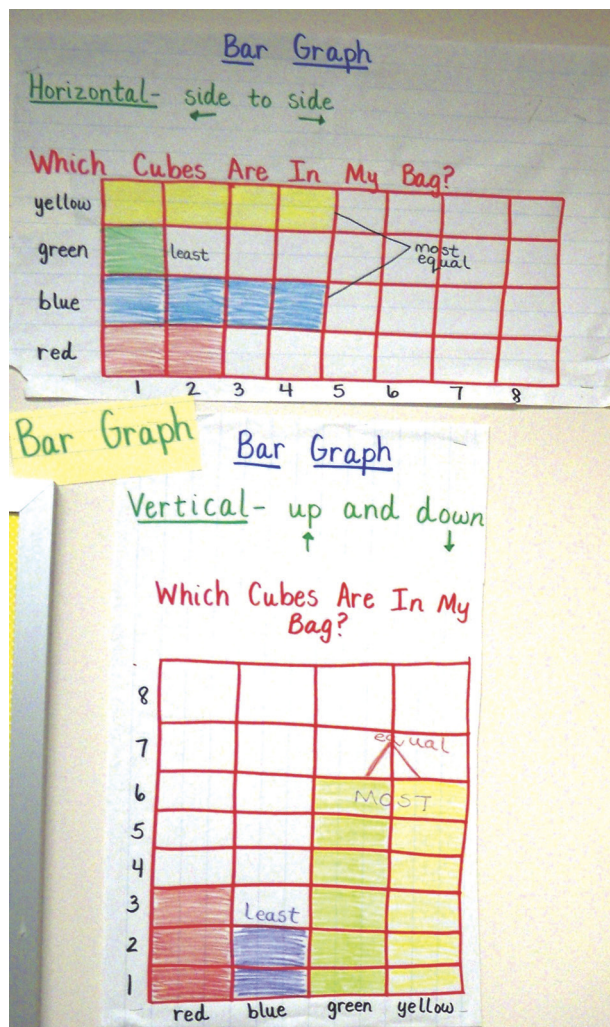 Bar Graph
Horizontal- side to side
Which Cubes Are In My Bag?
yellow
green least most
equal
blue
red
1 2 3 4 5 6 7 8
Bar Graph
Bar Graph
Vertical- up and down
Which Cubes Are In My
Bag?
8
7 equal
6 MOST
5
4
3 least
2
1
red blue green yellow